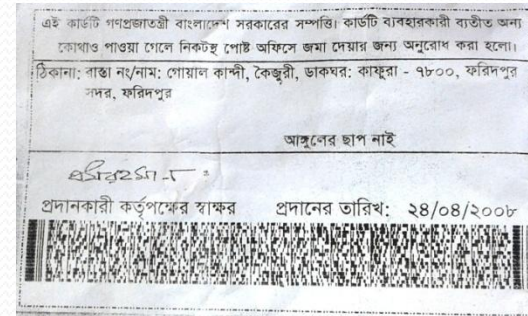 এই কার্ডটি গণপ্রজাতন্ত্রী বাংলাদেশ সরকারের সম্পত্তি। কার্ডটি ব্যবহারকারী ব্যতীত অন্য
কোথাও পাওয়া গেলে নিকটস্থ পোষ্ট অফিসে জমা দেয়ার জন্য অনুরোধ করা হলো।
ঠিকানা: বাস্তা নং/নাম: গোয়াল কান্দী, কৈজুরী, ডাকঘর: কাফুরা - ৭৮০০, ফরিদপুর
সদর, ফরিদপুর
আঙ্গুলের ছাপ নাই
প্রদানকারী কর্তৃপক্ষের স্বাক্ষর প্রদানের তারিখ: ২৪/০৪/২০০৮